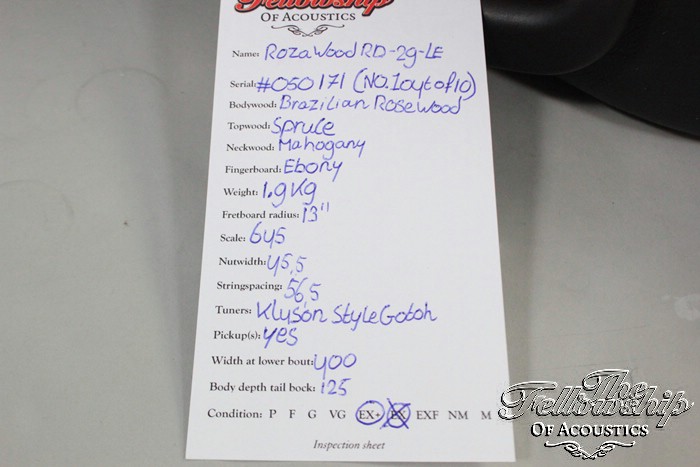 Fellowship
OF ACOUSTICS
Name: Rozawood RD-29-LE
Serial: #050171 (NO.1oytof10)
Bodywood: Brazilian Rosewood
Topwood: Spruce
Neckwood: Mahogany
Fingerboard: Ebony
Weight: 1.9Kg
Fretboard radius: 13"
Scale: 645
Nutwidth: 45,5
Stringspacing: 56,5
Tuners: Klyson Style Gotoh
Pickup(s): yes
Width at lower bout: 400
Body depth tail bock: 125
Condition: P F G VG EX+ EX EXF NM M
Inspection sheet
The
Fellowship
OF ACOUSTICS